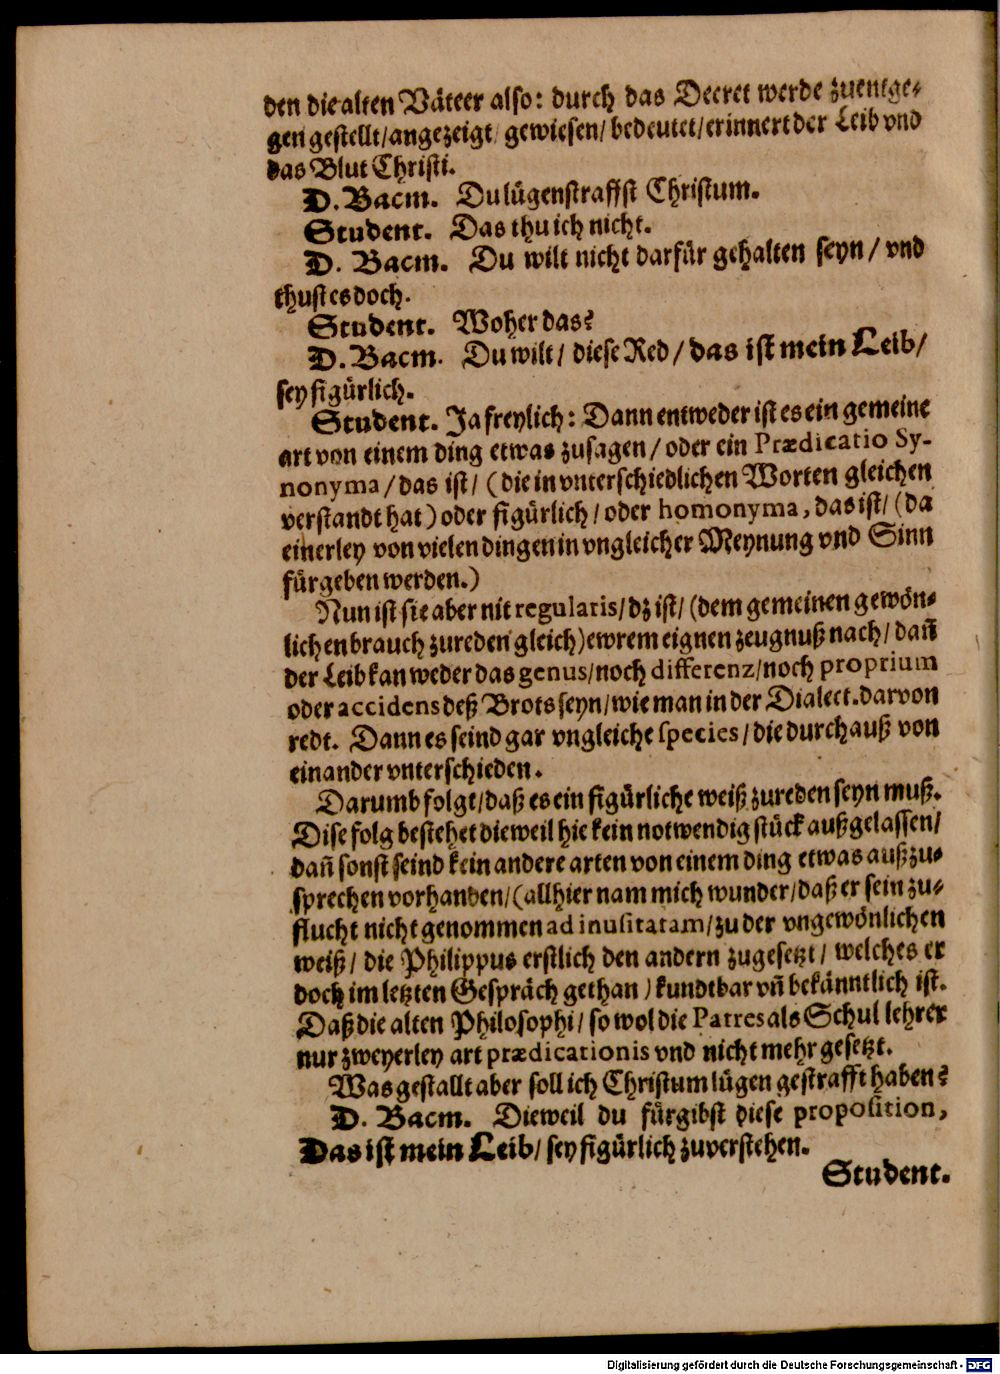 den die alten Väteer also: durch das Decret werde zuentge-
gen gestellt/angezeigt/ gewiesen/ bedeutet/erinnert der Leib vnd
das Blut Christi.
D. Bacm. Du lügenstraffst Christum.
Student. Das thu ich nicht.
D. Bacm. Du wilt nicht darfür gehalten seyn / vnd
thust es doch.
Student. Woher das?
D. Bacm. Du wilt/ diese Red / das ist mein Leib/
sey figürlich.
Student. Ja freylich: Dann entweder ist es ein gemeine
art von einem ding etwas zusagen / oder ein Prædicatio Sy-
nonyma / das ist/ (die in vnterschiedlichen Worten gleichen
verstandt hat) oder figürlich / oder homonyma, das ist/ (da
einerley von vielen dingen in vngleicher Meynung vnd Sinn
fürgeben werden.)
Nun ist sie aber nit regularis/ dz ist/ (dem gemeinen gewön-
lichen brauch zureden gleich) ewrem eignen zeugnuß nach/ dañ
der Leib kan weder das genus/ noch differenz/ noch proprium
oder accidens deß Brots seyn/ wie man in der Dialect. darvon
redt. Dann es seind gar vngleiche species / die durchauß von
einander vnterschieden.
Darumb folgt/ daß es ein figürliche weiß zureden seyn muß.
Dise folg bestehet dieweil hie kein notwendig stück außgelassen/
dañ sonst seind kein andere arten von einem ding etwas außzu-
sprechen vorhanden/ (allhier nam mich wunder/ daß er sein zu-
flucht nicht genommen ad inusitatam/ zu der vngewönlichen
weiß / die Philippus erstlich den andern zugesetzt / welches er
doch im letzten Gespräch gethan) kundtbar vñ bekänntlich ist.
Daß die alten Philosophi / so wol die Patres als Schul lehrer
nur zweyerley art prædicationis vnd nicht mehr gesetzt.
Was gestallt aber soll ich Christum lügen gestrafft haben?
D. Bacm. Dieweil du fürgibst diese proposition,
Das ist mein Leib/ sey figürlich zuverstehen.
Student.
Digitalisierung gefördert durch die Deutsche Forschungsgemeinschaft - DFG